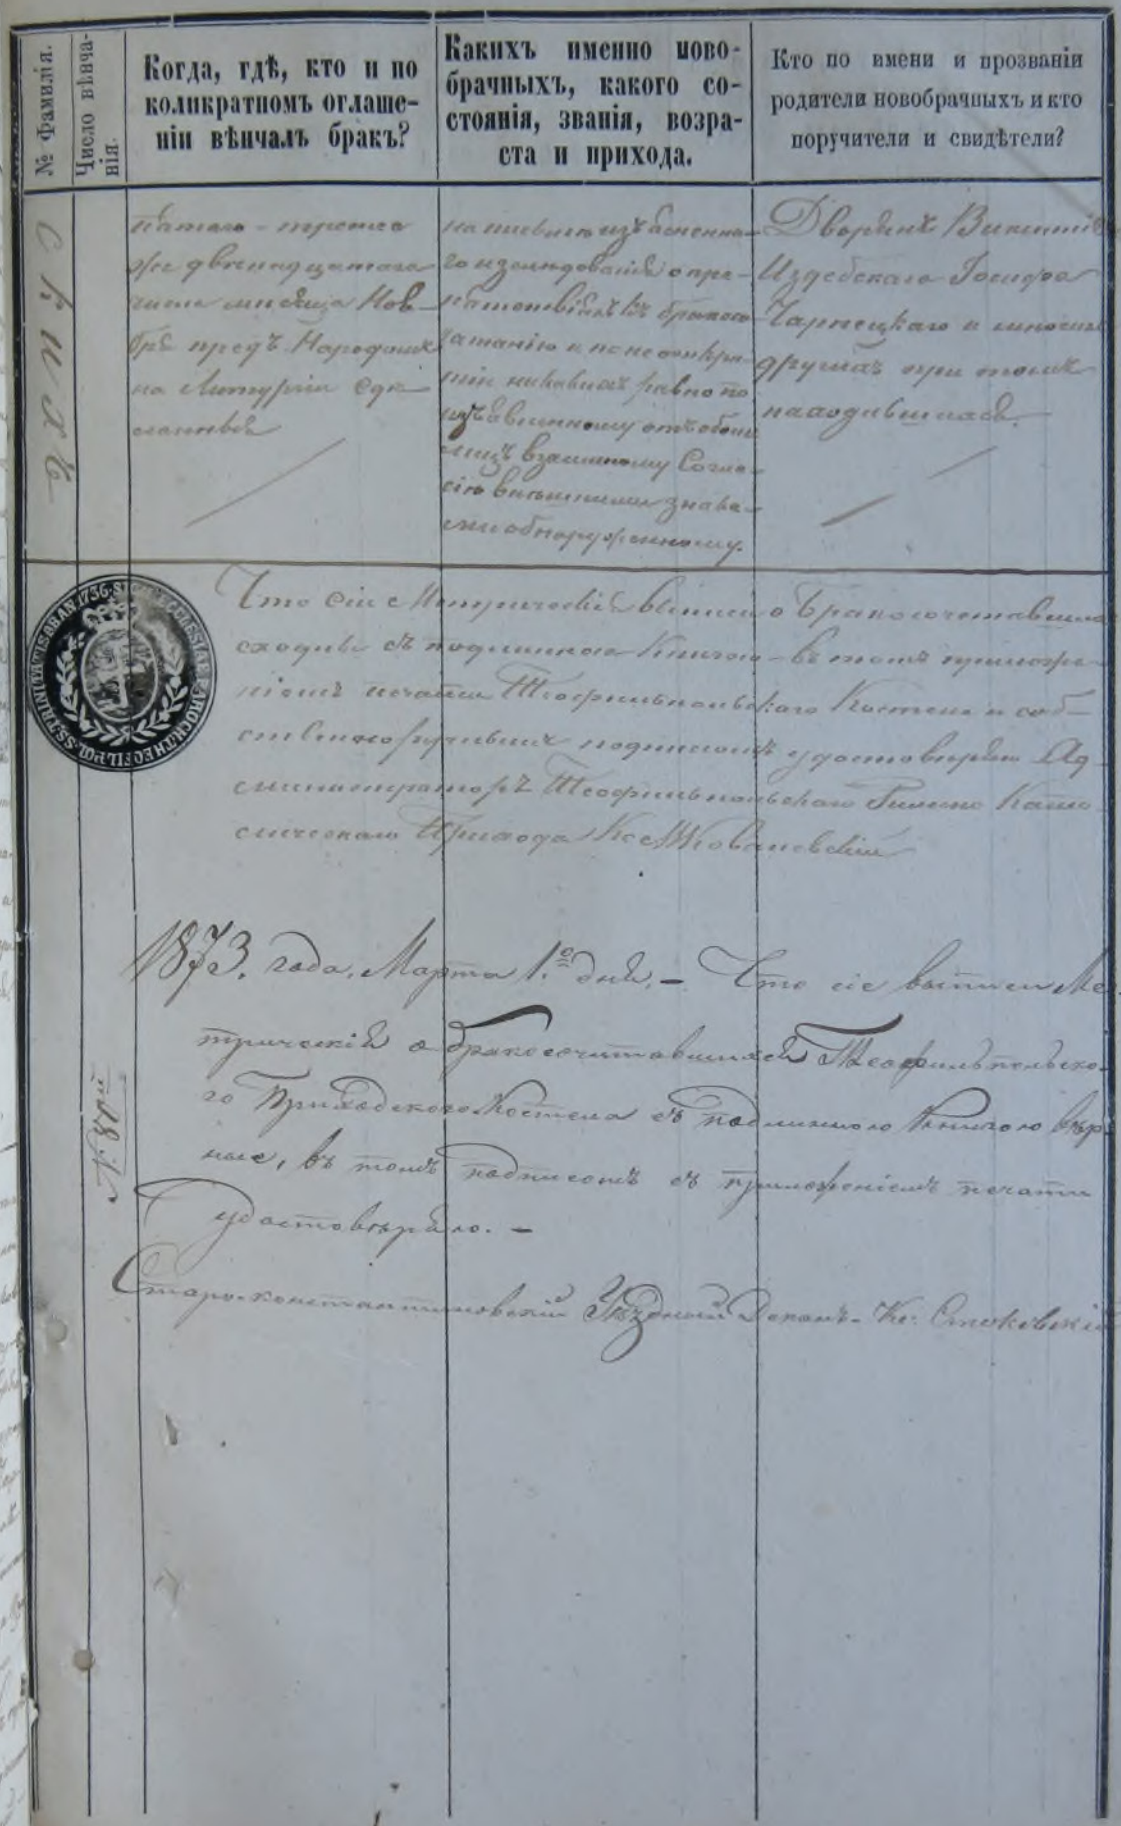 № Фамилія.
Число вѣнча-
нія.
Когда, гдѣ, кто и по
коликратномъ оглаше-
ніи вѣнчалъ бракъ?
Какихъ именно ново-
брачныхъ, какого со-
стоянія, званія, возра-
ста и прихода.
Кто по имени и прозванію
родители новобрачныхъ и кто
поручители и свидѣтели?
пятаго – третее
же двенадцатаго
числа мѣсяца Нояб-
бря предъ Народомъ
на Литургіи сдѣ-
ланныя
го изслѣдованія о пре-
пятствіяхъ къ бракосо-
четанію и по неоткры-
тіи никакихъ равно по
изъявленному отъ обоихъ
лицъ взаимному Согла-
сію внѣшними знака-
ми обнаруженному.
Дворянъ Викентія
Издебскаго Іосифа
Чарнецкаго и многихъ
другихъ при томъ
находившихся.
SS. TRINITATIS 1736
Что сіи Метрическія выписи о Бракосочетавшихся
сходны съ подлинною Книгою – въ томъ приложе-
ніемъ печати Теофильпольскаго Костела и соб-
ственноручнымъ подписомъ удостовѣряю Ад-
министраторъ Теофильпольскаго Римско Като-
лическаго Прихода Кс.
1873. года. Марта 1.го дня. – Что сіе выписи Ме-
трическія о бракосочетавшихся Теофильпольска-
го Приходскаго Костела съ подлинною Книгою вѣр-
ные, въ томъ подписомъ съ приложеніемъ печати
удостовѣряю. –
№ 80й
Старо-константиновскій Уѣздный Деканъ. Кс.